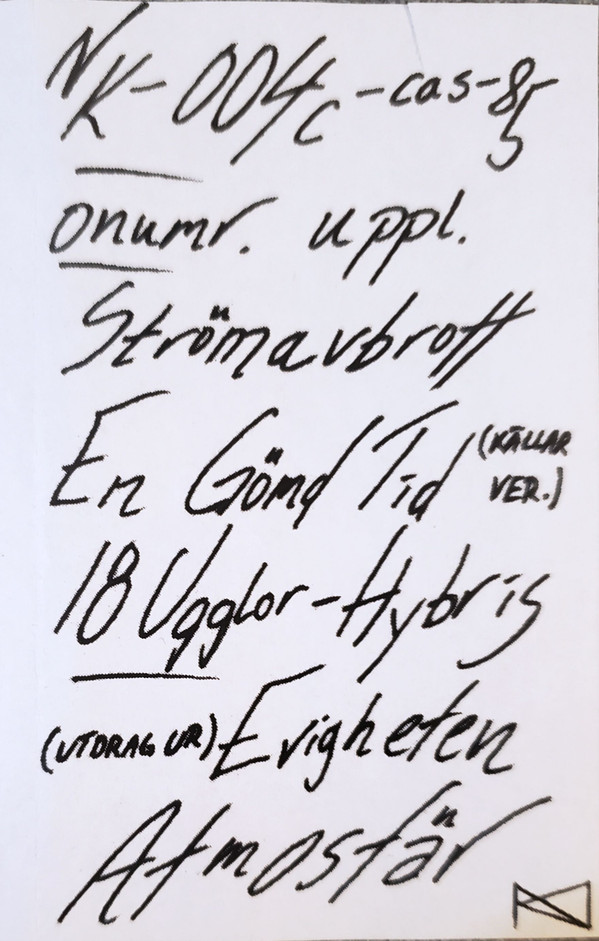 NK-004c-cas-85
onumr. uppl.
Strömavbrott
En Gömd Tid (KÄLLAR VER.)
18 Ugglor-Hybris
(UTDRAG UR) Evigheten
Atmosfär